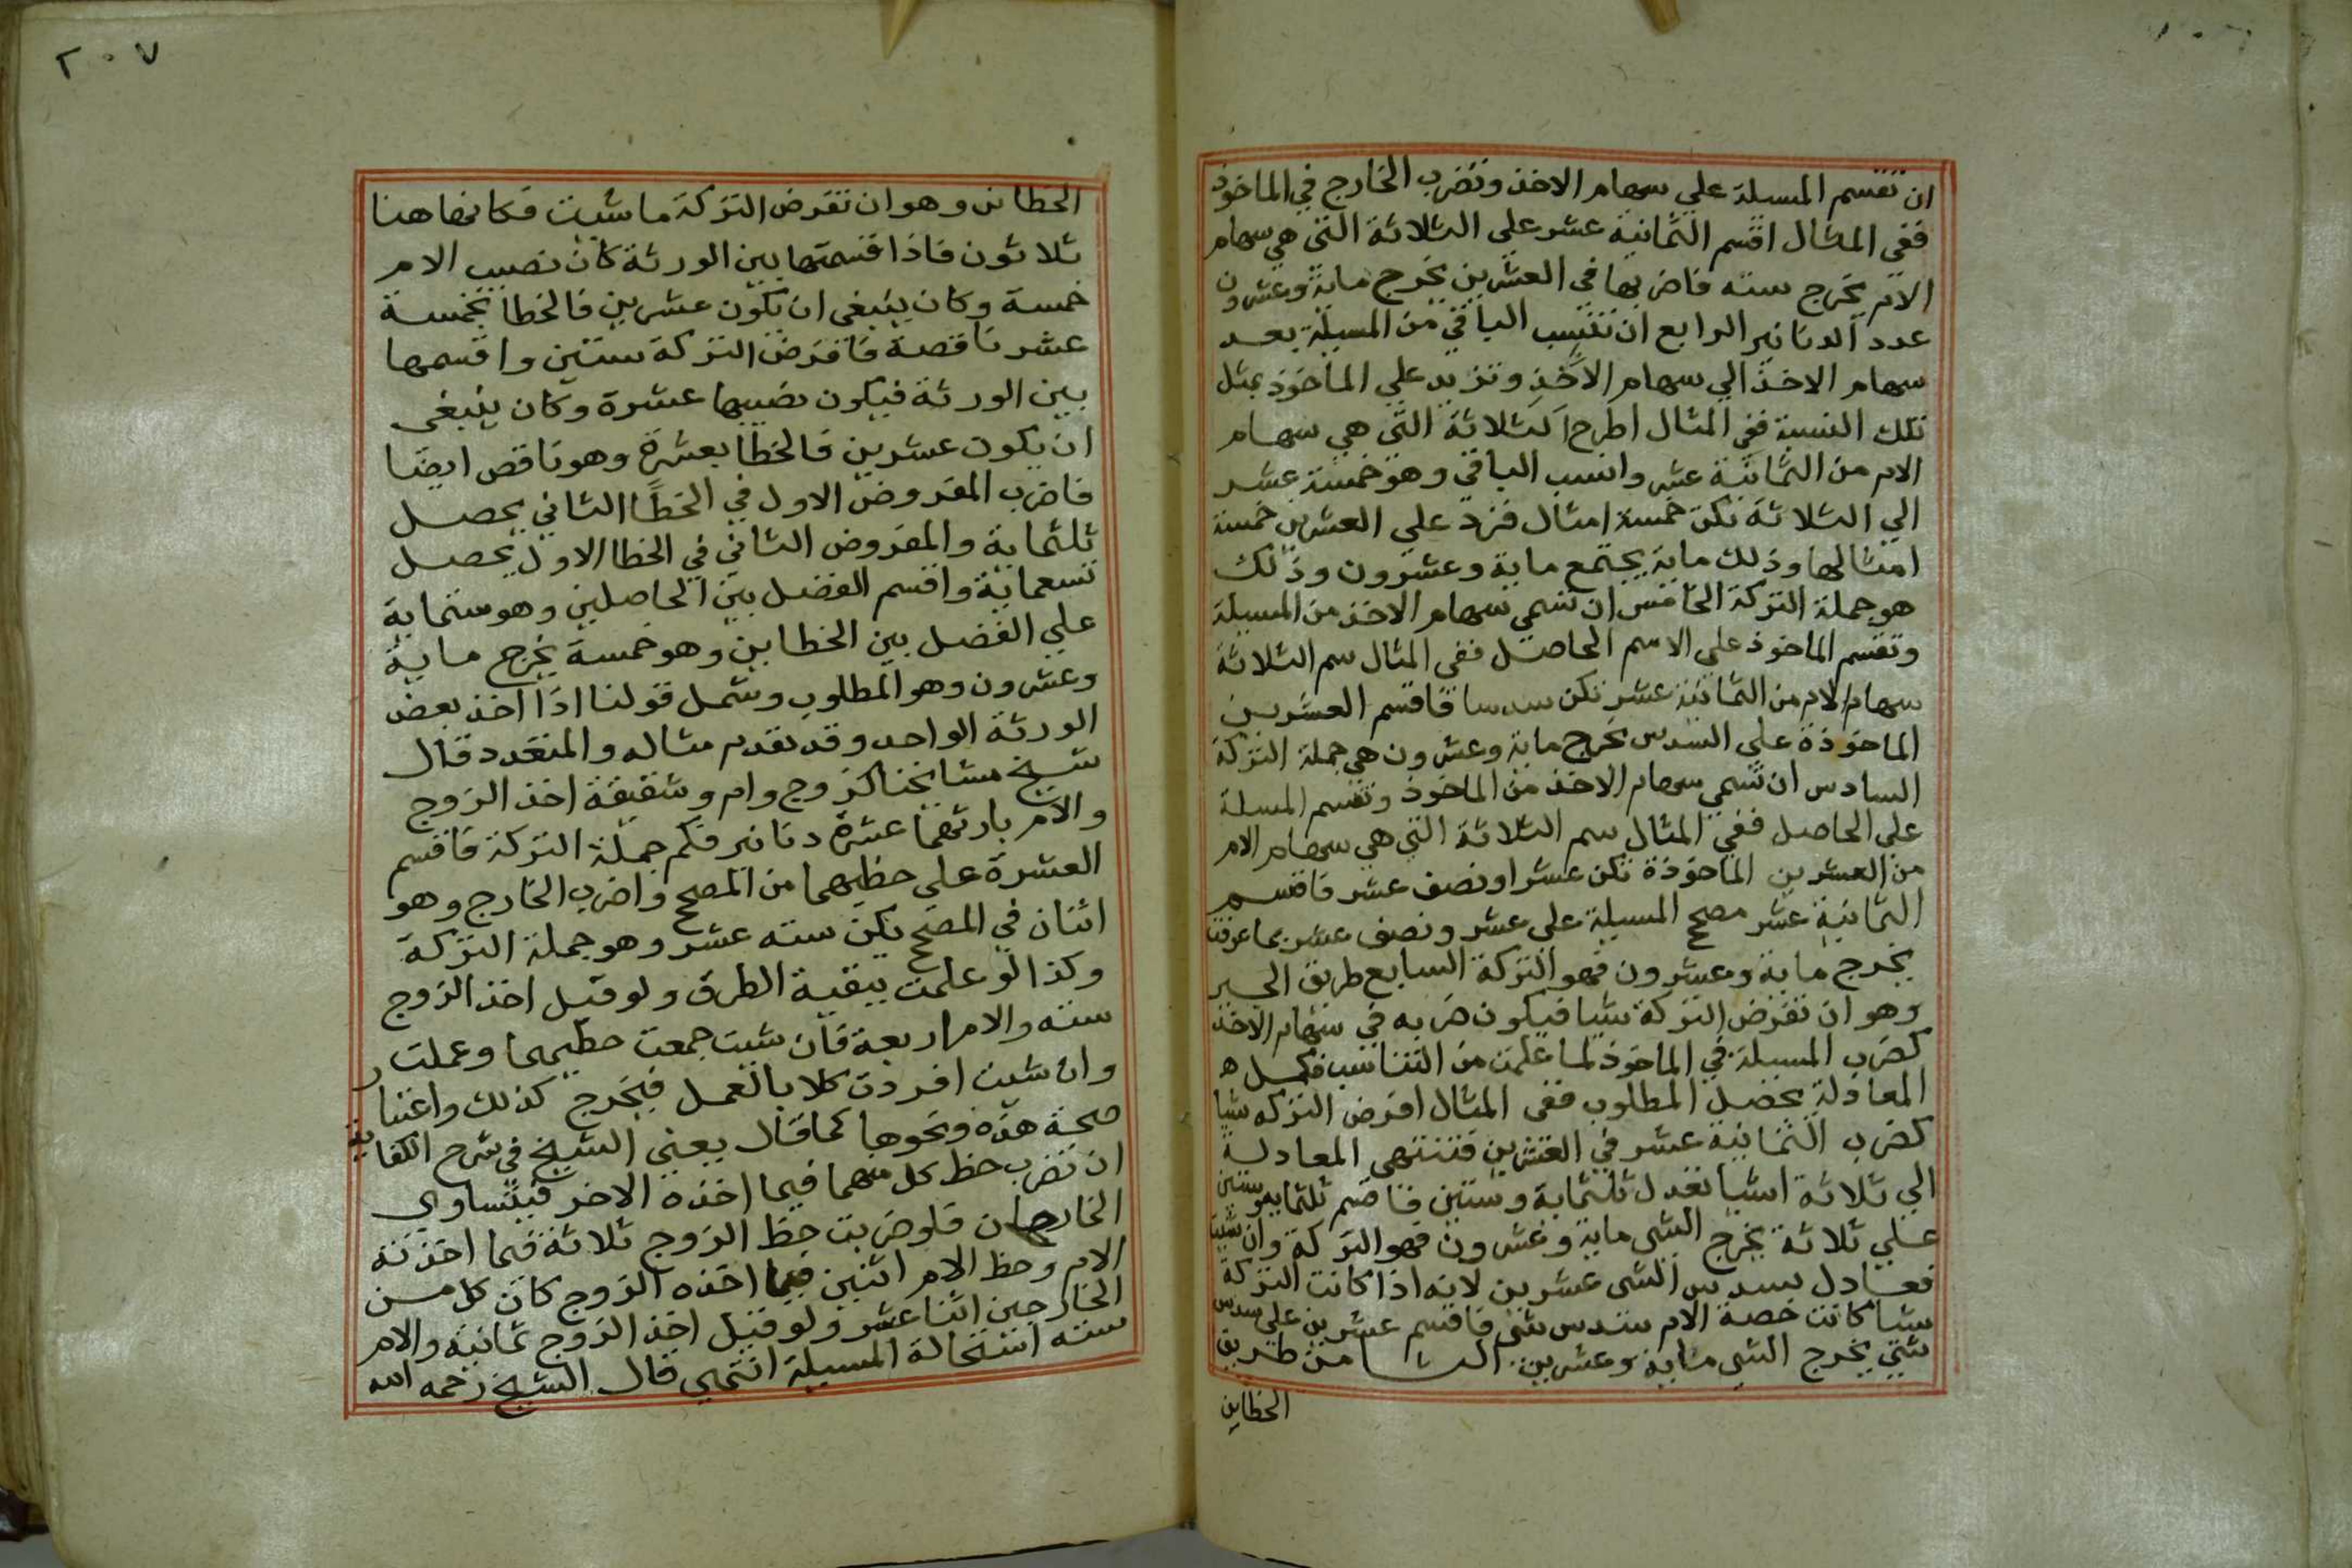 ان تقسم المسيلة علي سهام الاخذ وتضرب الخارج في الماخوذ
ففي المثال اقسم الثمانية عشر علي الثلاثة التي هي سهام
الام يخرج ستة فاضربها في العشرين يخرج ماية وعشرون
عدد الدنانير الرابع ان تنسب الباقي من المسيلة بعد
سهام الاخذ الي سهام الاخذ وتزيد علي الماخوذ بمثل
تلك النسبة ففي المثال اطرح الثلاثة التي هي سهام
الام من الثمانية عشر وانسب الباقي وهو خمسة عشر
الي الثلاثة تكن خمسة امثال فزد علي العشرين خمسة
امثالها وذلك ماية يجتمع ماية وعشرون وذلك
هو جملة التركة الخامس ان تسمي سهام الاخذ من المسيلة
وتقسم الماخوذ علي الاسم الحاصل ففي المثال سم الثلاثة
سهام الام من الثمانية عشر تكن سدسا فاقسم العشرين
الماخوذة علي السدس يخرج ماية وعشرون هي جملة التركة
السادس ان تسمي سهام الاخذ من الماخوذ وتقسم المسلة
علي الحاصل ففي المثال سم الثلاثة التي هي سهام الام
من العشرين الماخوذة تكن عشرا ونصف عشر فاقسم
الثمانية عشر مصحح المسيلة علي عشر ونصف عشر بما عرفت
يخرج ماية وعشرون فهو التركة السابع طريق الجبر
وهو ان تفرض التركة شيا فيكون ضربه في سهام الاخذ
كضرب المسيلة في الماخوذ لما علمت من التناسب فكمل ه
المعادلة يحصل المطلوب ففي المثال افرض التركه شيا
كضرب الثمانية عشر في العشرين فتنتهي المعادلة
الي ثلاثة اشيا تعدل ثلثماية وستين فاقسم ثلثماية وستين
علي ثلاثة يخرج الشي ماية وعشرون فهو التركة وان شيت
فعادل بسدس الشي عشرين لانه اذا كانت التركة
شيا كانت حصة الام سدس شي فاقسم عشرين علي سدس
شي يخرج الشي ماية وعشرين الثامن طريق
الخطاين
٢٠٧
الخطاين وهو ان تفرض التركة ما شيت فكانها هنا
ثلاثون فاذا قسمتها بين الورثة كان نصيب الام
خمسة وكان ينبغي ان يكون عشرين فالخطا بخمسة
عشر ناقصة فافرض التركة ستين واقسمها
بين الورثة فيكون نصيبها عشرة وكان ينبغي
ان يكون عشرين فالخطا بعشرة وهو ناقص ايضا
فاضرب المفروض الاول في الخطا الثاني يحصل
ثلثماية والمفروض الثاني في الخطا الاول يحصل
تسعماية واقسم الفضل بين الحاصلين وهو ستماية
علي الفضل بين الخطاين وهو خمسة يخرج ماية
وعشرون وهو المطلوب وشمل قولنا اذا اخذ بعض
الورثة الواحد وقد تقدم مثاله والمتعدد قال
شيخ مشايخنا كزوج وام وشقيقة اخذ الزوج
والام بارثهما عشرة دنانير فكم جملة التركة فاقسم
العشرة علي حظيهما من المصحح واضرب الخارج وهو
اثنان في المصحح يكن ستة عشر وهو جملة التركة
وكذا لو علمت ببقية الطرق ولو قيل اخذ الزوج
ستة والام اربعة فان شيت جمعت حظيهما وعملت
وان شيت افردت كلا بالعمل فيخرج كذلك واعتبار
صحة هذه ونحوها كما قال يعني الشيخ في شرح الكفاية
ان تضرب حظ كل منهما فيما اخذه الاخر فيتساوي
الخارجان فلو ضربت حظ الزوج ثلاثة فيما اخذته
الام وحظ الام اثنين فيما اخذه الزوج كان كل من
الخارجين اثنا عشر ولو قيل اخذ الزوج ثمانية والام
ستة استحالة المسيلة انتهي قال الشيخ رحمه الله